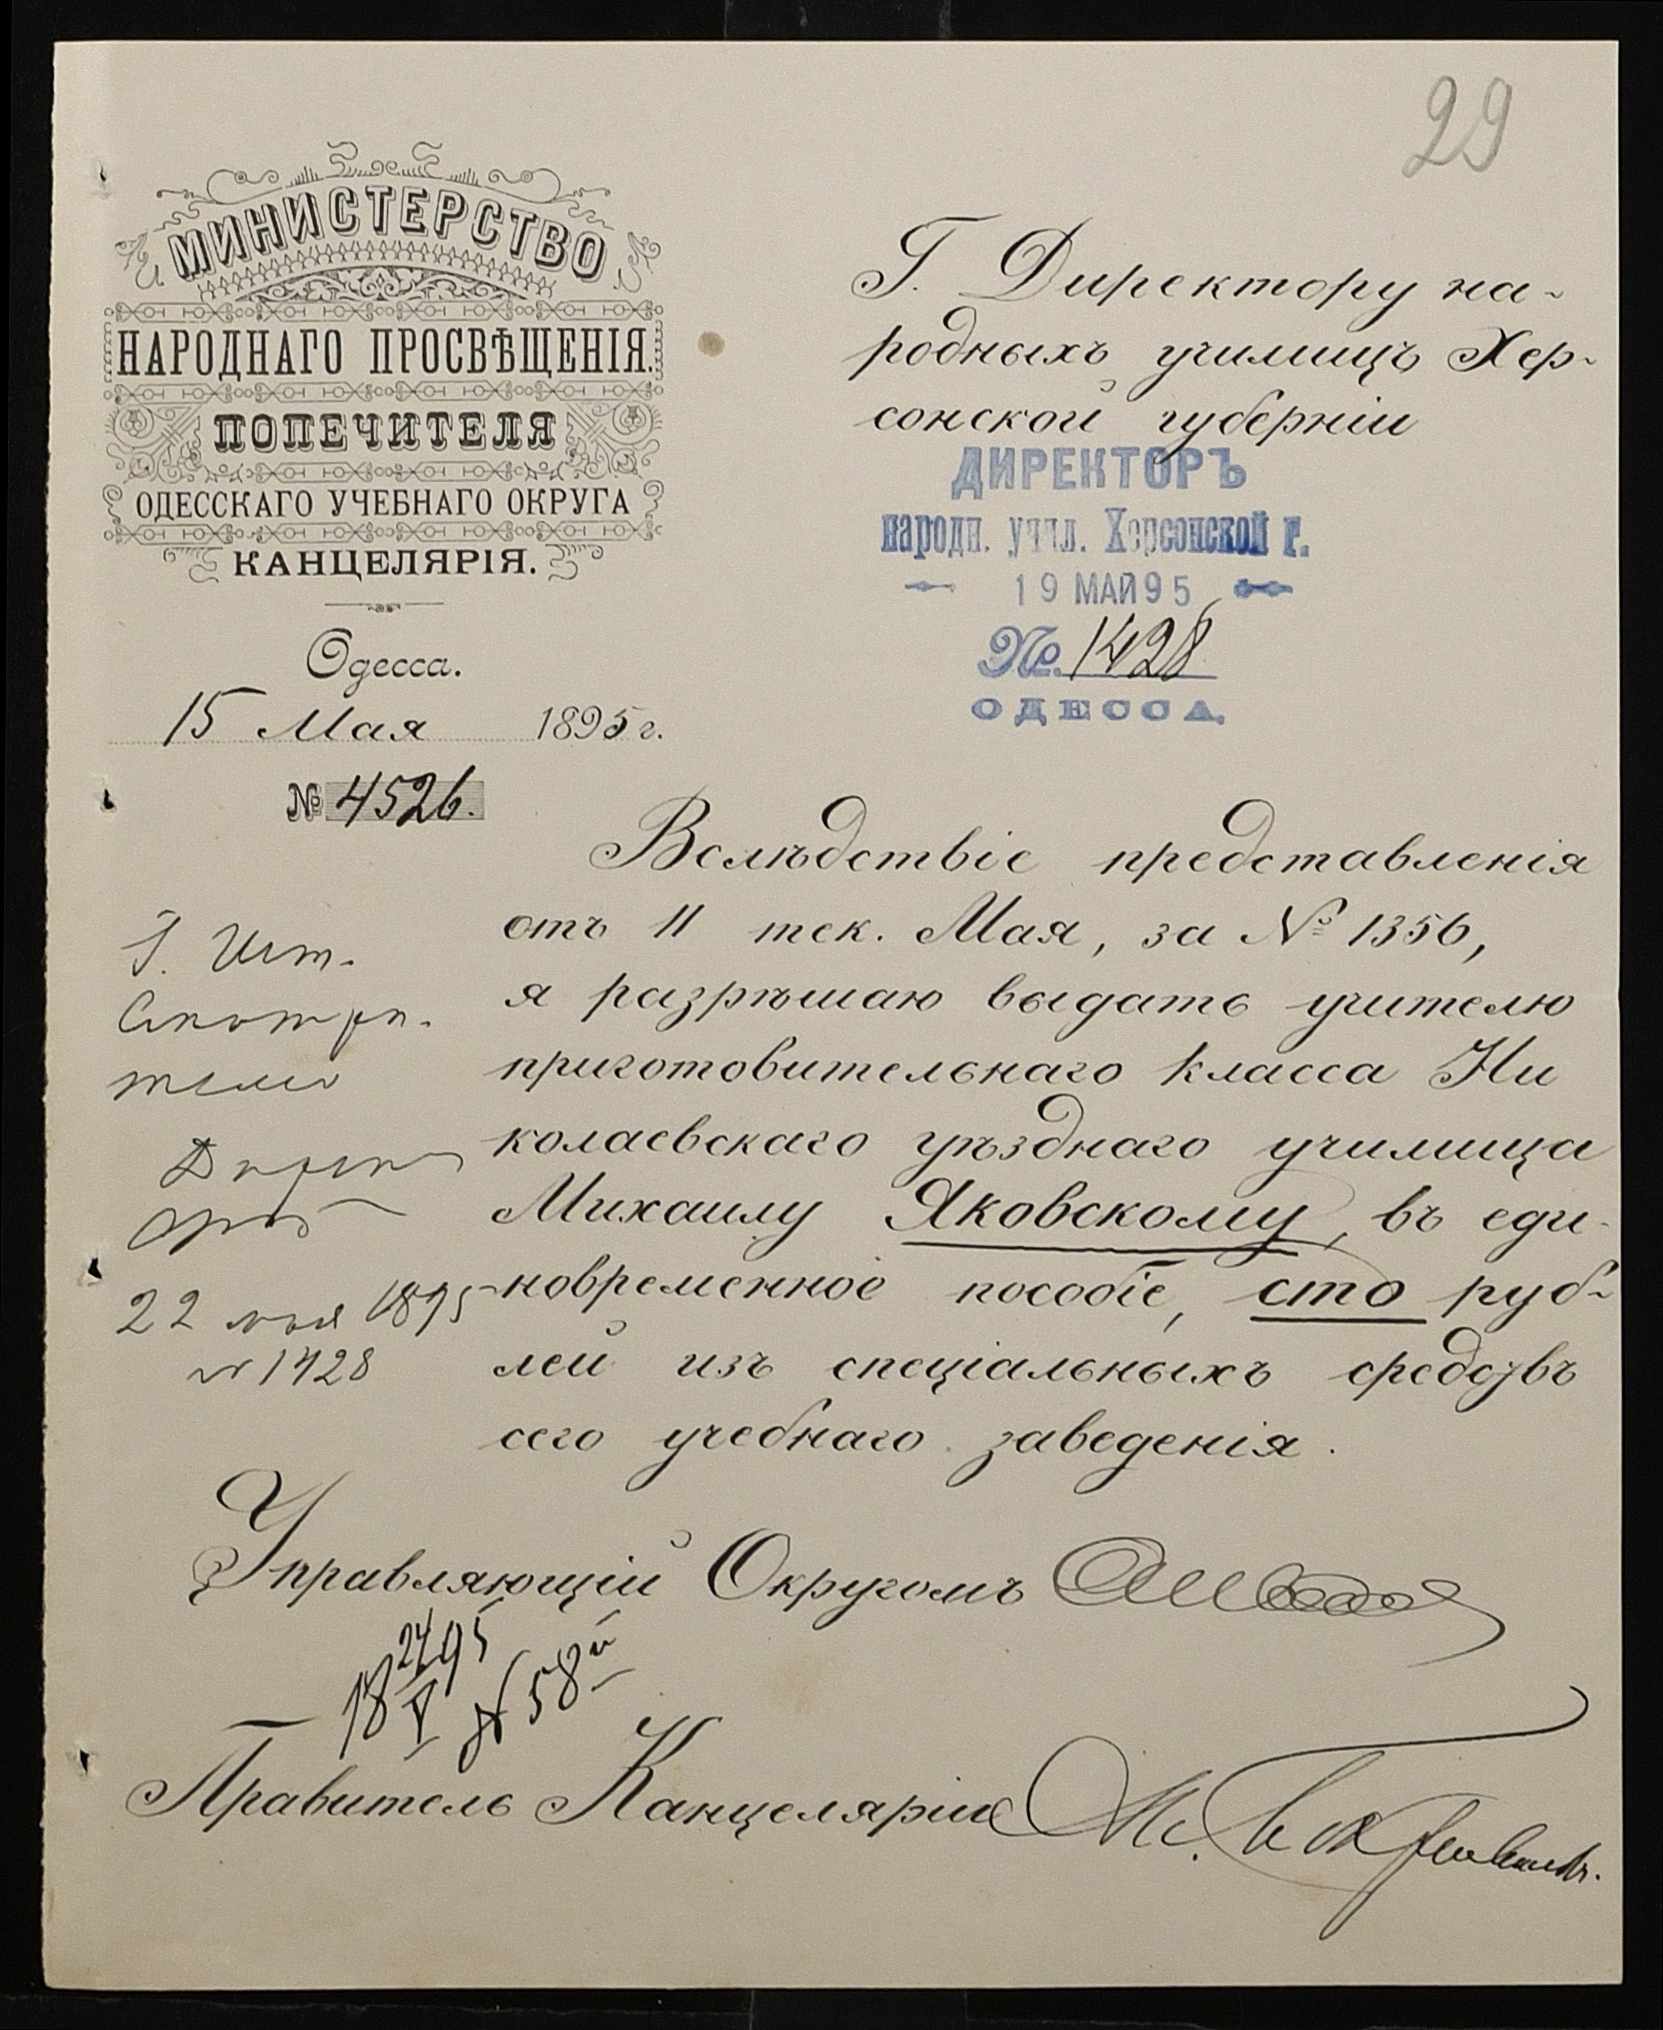 29
МИНИСТЕРСТВО
НАРОДНАГО ПРОСВѢЩЕНІЯ.
ПОПЕЧИТЕЛЯ
ОДЕССКАГО УЧЕБНАГО ОКРУГА
КАНЦЕЛЯРІЯ.
Одесса.
15 Мая 1895 г.
№ 4526.
Г. Директору на-
родныхъ училищъ Хер-
сонской губерніи
ДИРЕКТОРЪ
народн. учил. Херсонской г.
19 МАЙ 95
№ 1428
ОДЕССА.
Вслѣдствіе представленія
отъ 11 тек. Мая, за № 1356,
я разрѣшаю выдать учителю
приготовительнаго класса Ни
колаевскаго уѣзднаго училища
Михаилу Яковскому, въ еди-
новременное пособіе, сто руб-
лей изъ спеціальныхъ средствъ
сего учебнаго заведенія.
Г. Шт.
Смотри-
телю
22 мая 1895
№ 1428
Управляющій Округомъ
18 24/V 95 № 58
Правитель Канцеляріи